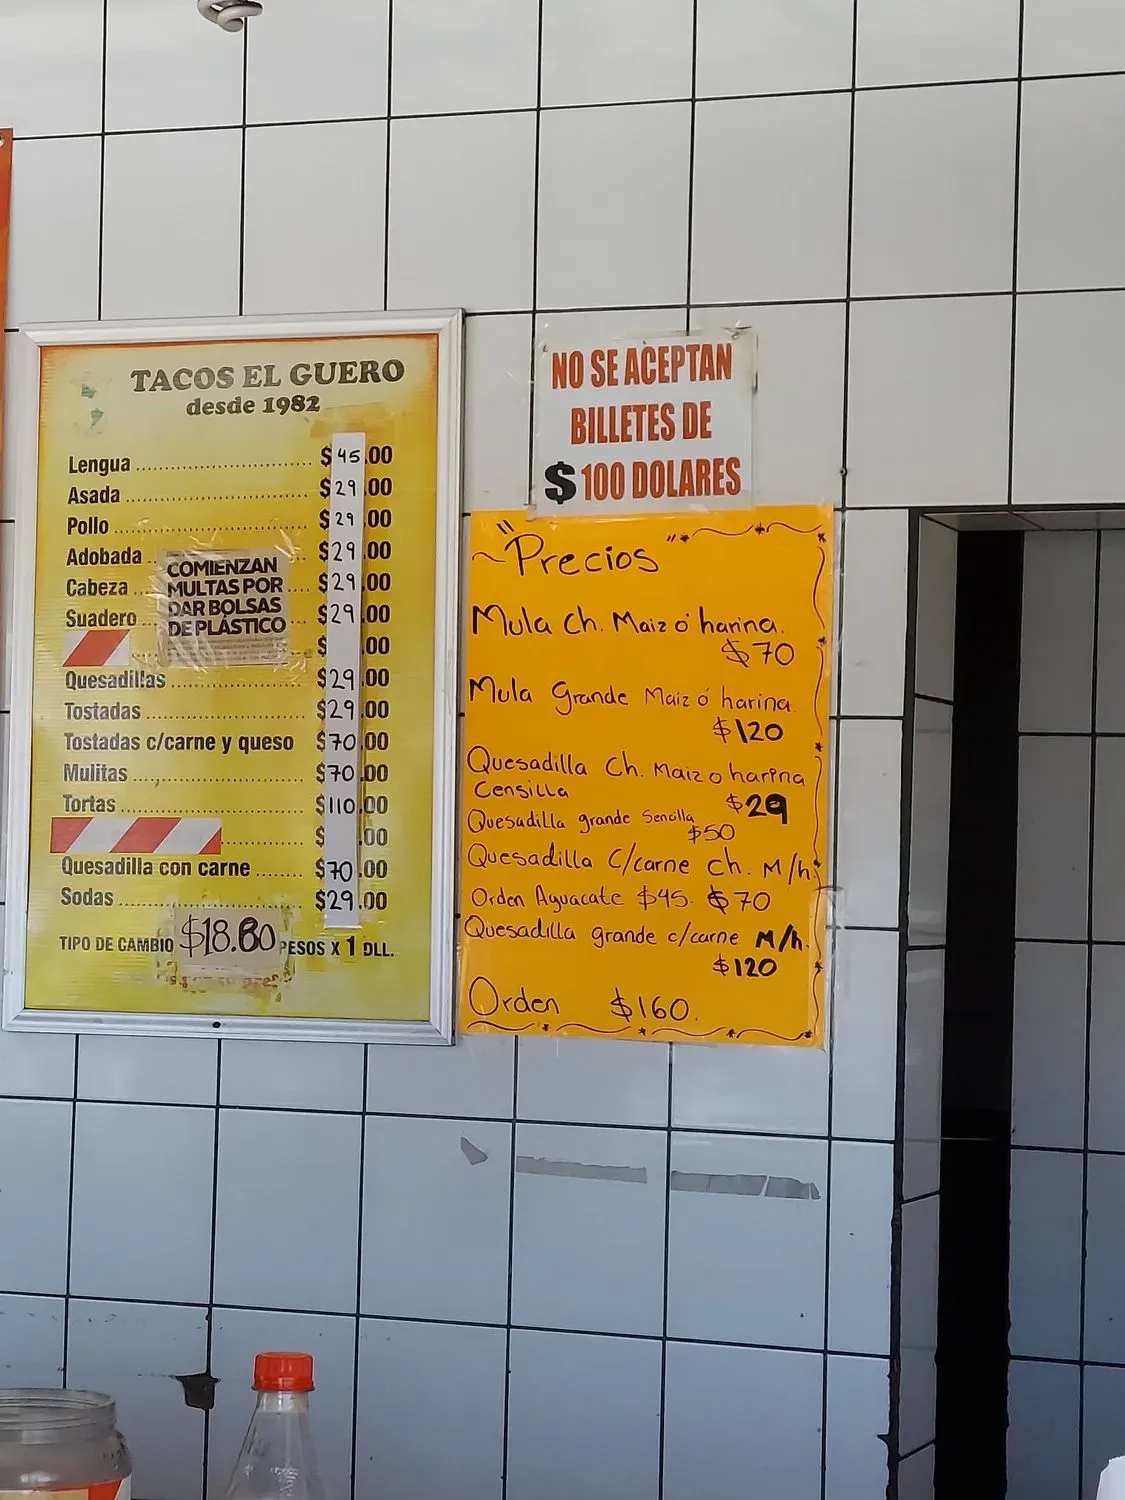 TACOS EL GUERO
desde 1982
Lengua ........ $45.00
Asada ........ $29.00
Pollo ........ $29.00
Adobada ........ $29.00
Cabeza ........ $29.00
Suadero ........ $29.00
$ .00
Quesadillas ........ $29.00
Tostadas ........ $29.00
Tostadas c/carne y queso $70.00
Mulitas ........ $70.00
Tortas ........ $110.00
$ .00
Quesadilla con carne ........ $70.00
Sodas ........ $29.00
TIPO DE CAMBIO $18.60 PESOS X 1 DLL.
COMIENZAN
MULTAS POR
DAR BOLSAS
DE PLÁSTICO
NO SE ACEPTAN
BILLETES DE
$100 DOLARES
"Precios"
Mula Ch. Maiz ó harina.
$70
Mula Grande Maiz ó harina
$120
Quesadilla Ch. Maiz o harina
Censilla $29
Quesadilla grande Sencilla
$50
Quesadilla C/carne Ch. M/h
Orden Aguacate $45. $70
Quesadilla grande c/carne M/h.
$120
Orden $160.